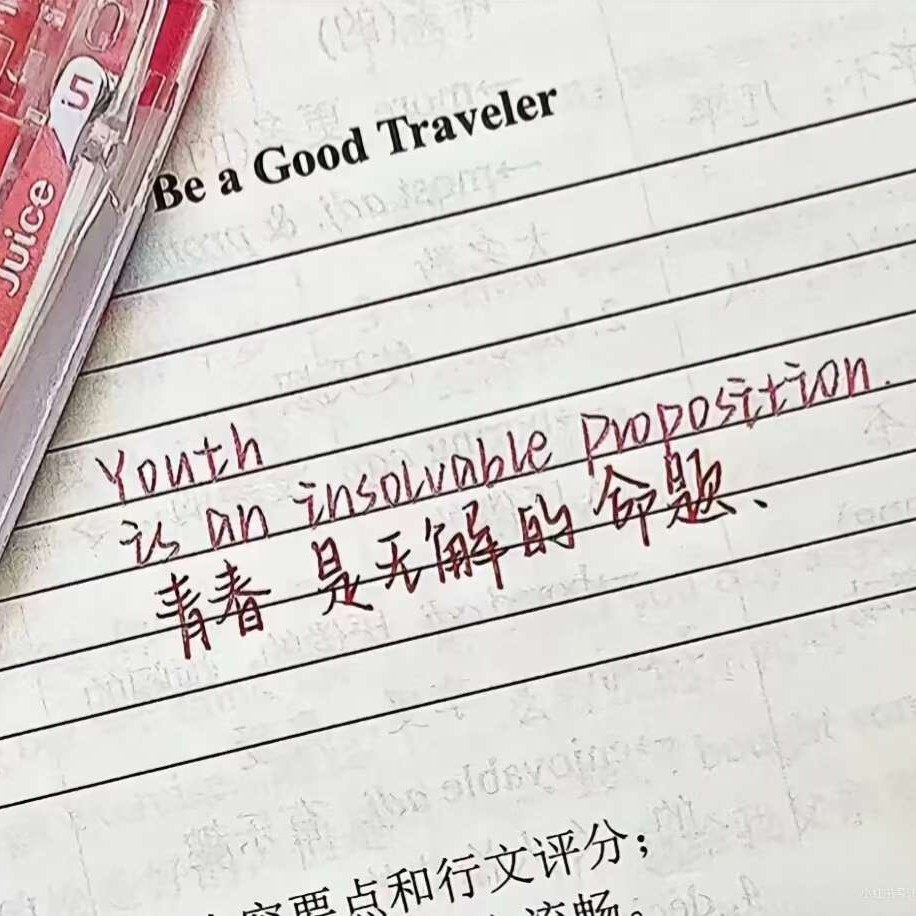 .5
Juice
Be a Good Traveler
Youth
is an insolvable proposition.
青春是无解的命题、
容要点和行文评分；
流畅。